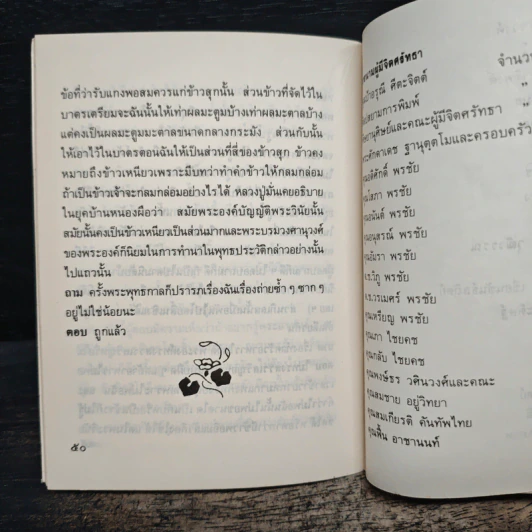 ข้อที่ว่ารับแกงพอสมควรแก่ข้าวสุกนั้น ส่วนข้าวที่จัดไว้ใน
บาตรเตรียมจะฉันนั้นให้เท่าผลมะตูมบ้างเท่าผลมะตาลบ้าง
แต่คงเป็นผลมะตูมมะตาลขนาดกลางกระมัง ส่วนกับนั้น
ให้เอาไว้ในบาตรตอนฉันให้เป็นส่วนที่สี่ของข้าวสุก ข้าวคง
หมายถึงข้าวเหนียวเพราะมีบทว่าทำคำข้าวให้กลมกล่อม
ถ้าเป็นข้าวเจ้าจะกลมกล่อมอย่างไรได้ หลวงปู่มั่นเคยอธิบาย
ในยุคบ้านหนองผือว่า สมัยพระองค์บัญญัติพระวินัยนั้น
สมัยนั้นคงเป็นข้าวเหนียวเป็นส่วนมากและพระบรมวงศานุวงศ์
ของพระองค์ก็นิยมในการทำนาในพุทธประวัติกล่าวอย่างนั้น
ไปแถวนั้น
ถาม ครั้งพระพุทธกาลก็ปรารภเรื่องฉันเรื่องถ่ายซ้ำ ๆ ซาก ๆ
อยู่ไม่ใช่น้อยนะ
ตอบ ถูกแล้ว
๕๐
นามผู้มีจิตศรัทธา จำนวน
อรุณี ศีตะจิตต์ "
สยามการพิมพ์ "
ศิษย์และคณะผู้มีจิตศรัทธา "
ฐานุตตโมและครอบครัว
พรชัย
โสภา พรชัย
อนันต์ พรชัย
คุณอนุสรณ์ พรชัย
พรชัย
พรชัย
พรชัย
คุณเหรียญ พรชัย
คุณภา ไชยคช
คุณกลับ ไชยคช
คุณพงษ์ธร วศินวงศ์และคณะ
คุณสมชาย อยู่วิทยา
คุณสมเกียรติ คันทัพไทย
คุณพื้น อาชานนท์